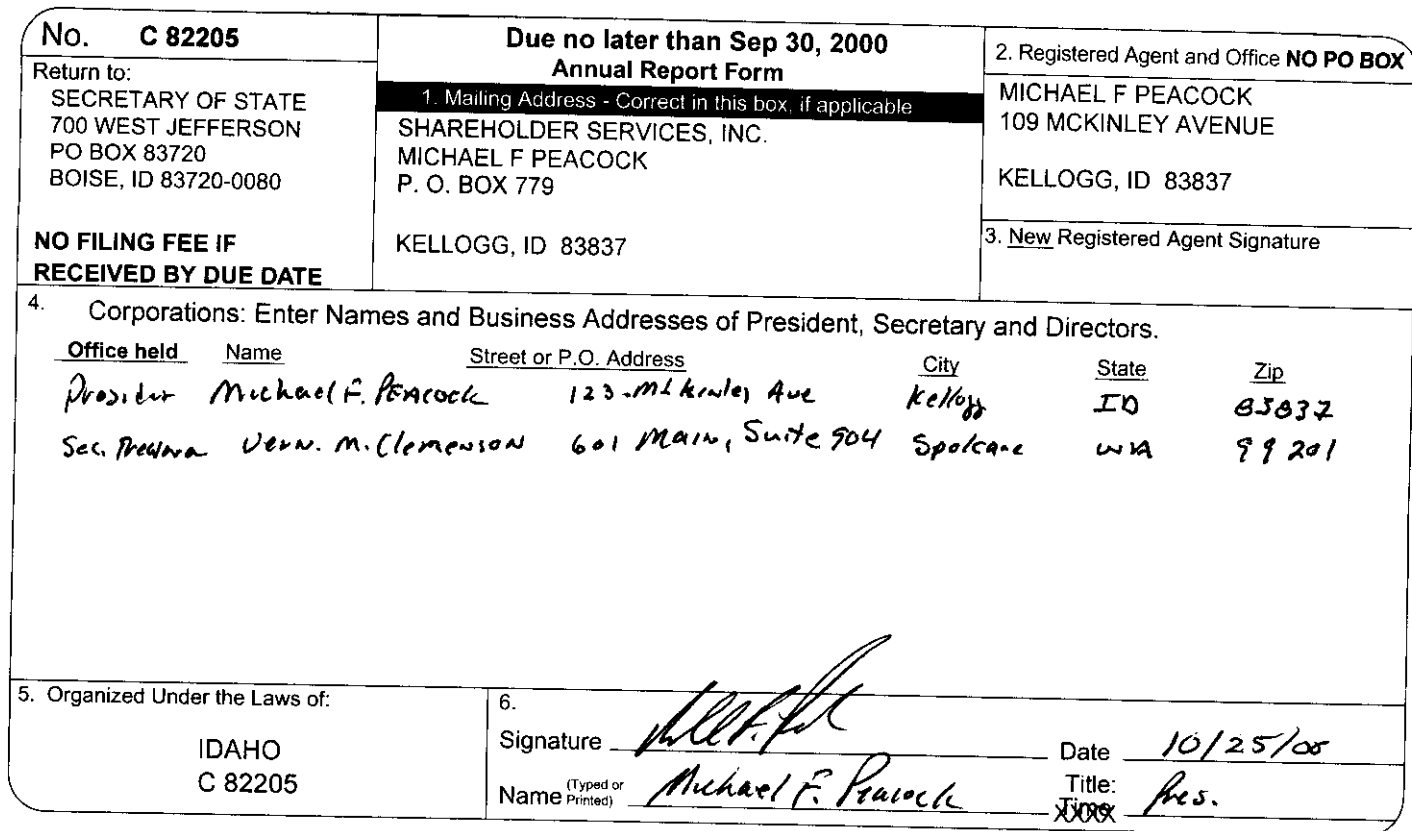 No. C 82205
Return to:
SECRETARY OF STATE
700 WEST JEFFERSON
PO BOX 83720
BOISE, ID 83720-0080
NO FILING FEE IF
RECEIVED BY DUE DATE
Due no later than Sep 30, 2000
Annual Report Form
1. Mailing Address - Correct in this box, if applicable
SHAREHOLDER SERVICES, INC.
MICHAEL F PEACOCK
P. O. BOX 779
KELLOGG, ID 83837
2. Registered Agent and Office NO PO BOX
MICHAEL F PEACOCK
109 MCKINLEY AVENUE
KELLOGG, ID 83837
3. New Registered Agent Signature
4. Corporations: Enter Names and Business Addresses of President, Secretary and Directors.
Office held Name Street or P.O. Address City State Zip
Michael F. Peacock 123 McKinley Ave Kellogg ID 83837
Sec. Vern. M. Clemenson 601 Main, Suite 904 Spokane WA 99201
5. Organized Under the Laws of:
IDAHO
C 82205
6.
Signature Date 10/25/00
Name (Typed or Printed) Michael F. Peacock Title: Pres.